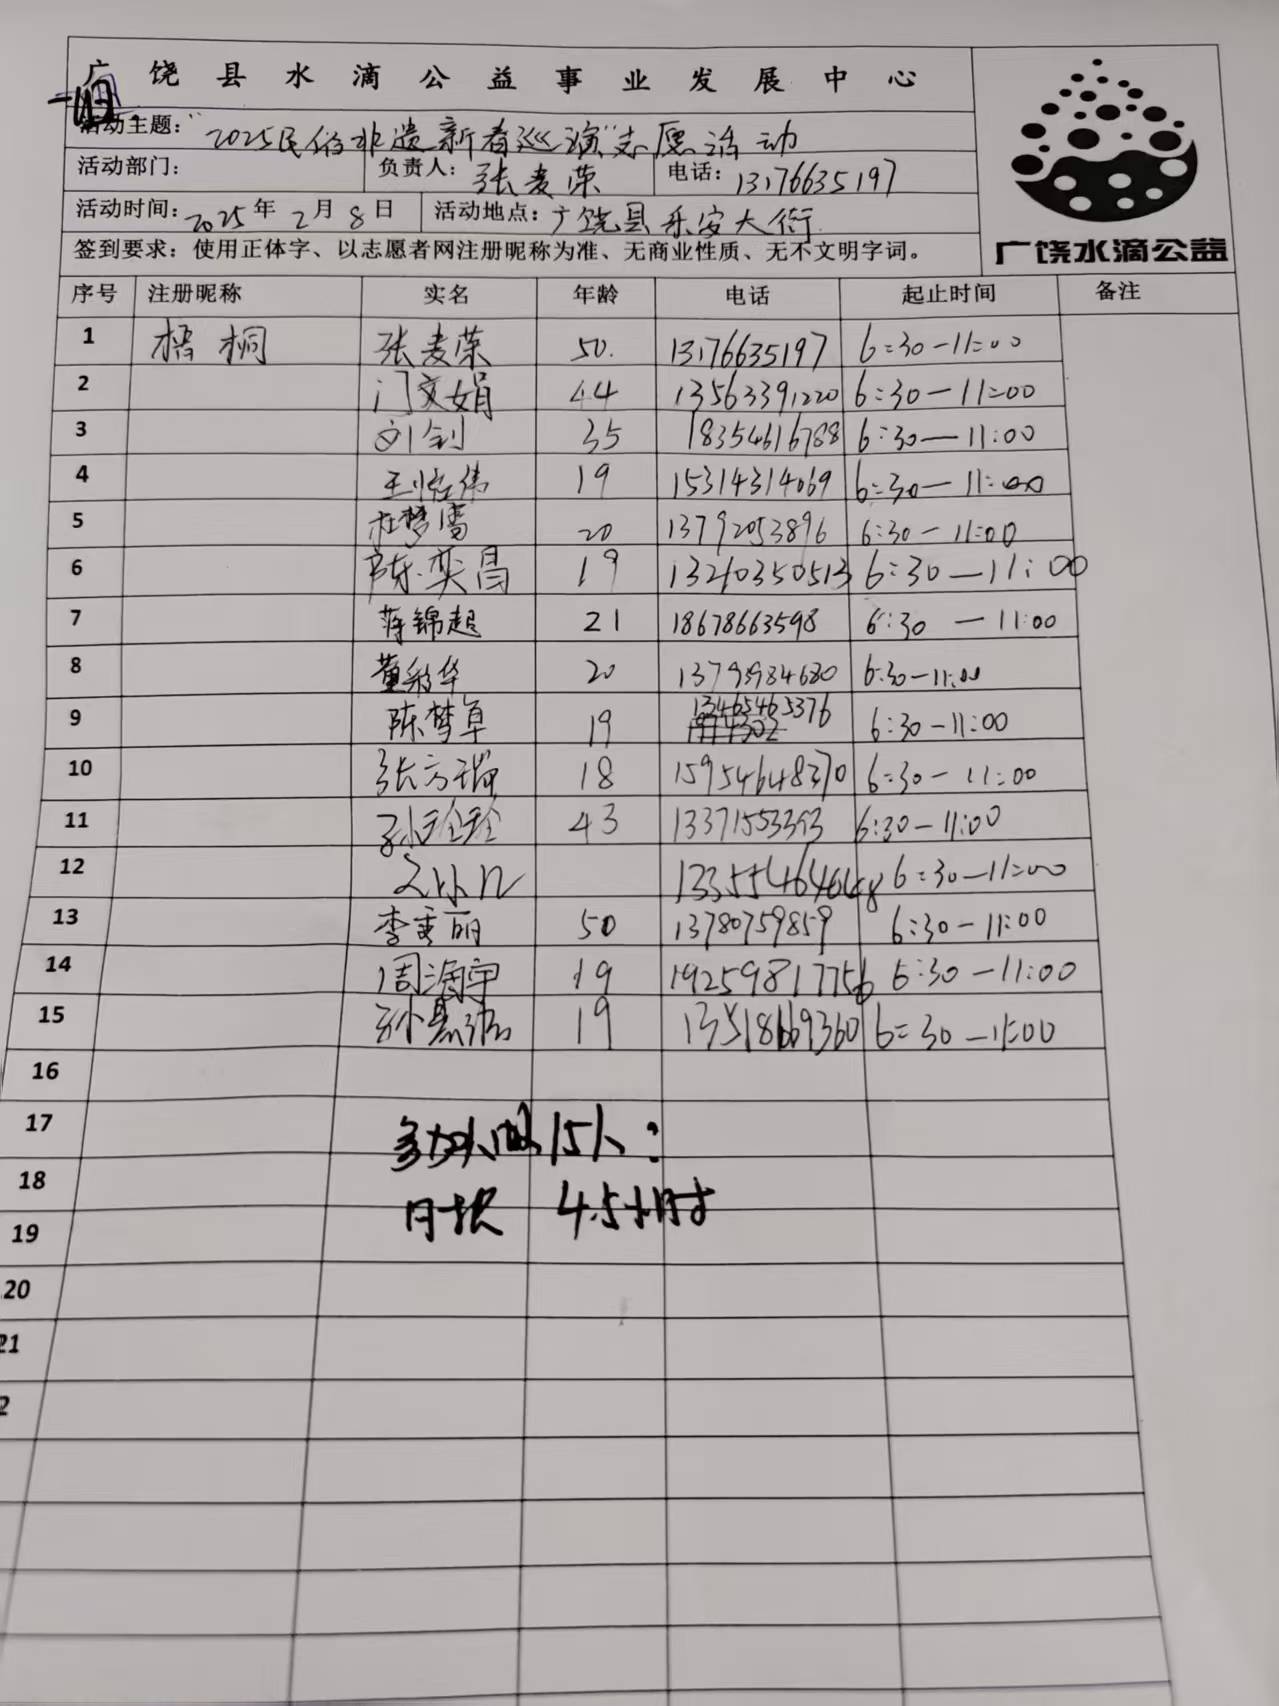 广饶县水滴公益事业发展中心
活动主题："2025民俗非遗新春巡演"志愿活动
活动部门： 负责人：张麦荣 电话：13176635197
活动时间：2025年2月8日 活动地点：广饶县乐安大街
签到要求：使用正体字、以志愿者网注册昵称为准、无商业性质、无不文明字词。
广饶水滴公益
序号 注册昵称 实名 年龄 电话 起止时间 备注
1 梧桐 张麦荣 50. 13176635197 6:30-11:00
2 门文娟 44 13563391220 6:30-11:00
3 刘钊 35 18354616788 6:30-11:00
4 19 15314314069 6:30-11:00
5 杜梦雪 20 13792053896 6:30-11:00
6 陈奕昌 19 13210350513 6:30-11:00
7 蒋锦超 21 18678663598 6:30-11:00
8 董彩华 20 13793984680 6:30-11:00
9 陈梦卓 19 13465465376 6:30-11:00
10 张方瑞 18 15954648370 6:30-11:00
11 孙铨铨 43 13371553393 6:30-11:00
12 13355464648 6:30-11:00
13 李秀丽 50 13780759859 6:30-11:00
14 周海宇 19 19259817756 6:30-11:00
15 19 13518669360 6:30-11:00
16
17 参加人 15人：
18
19 4.5小时
20
21
2